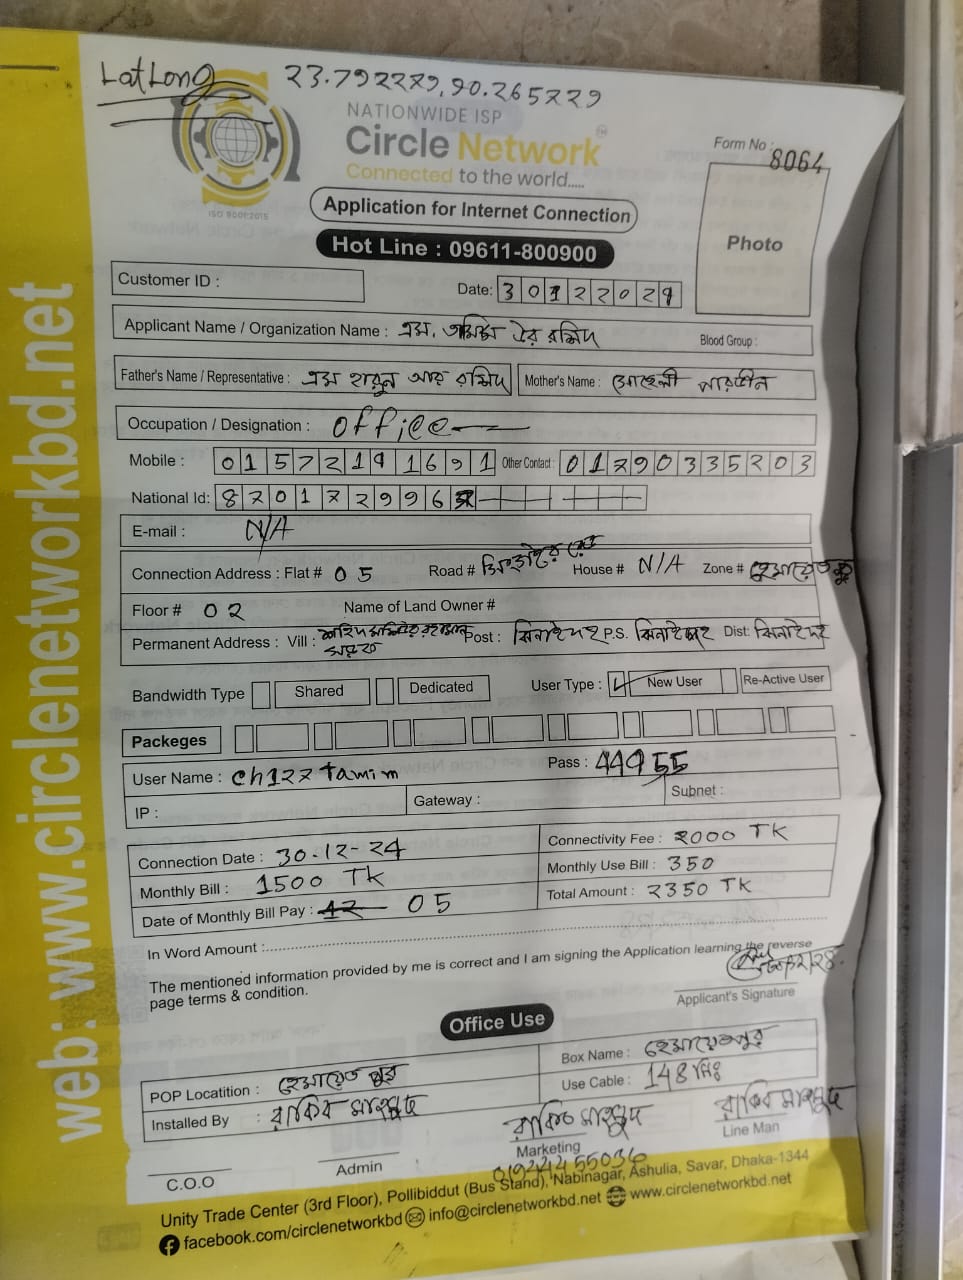 LatLong 23.792279, 90.265729
NATIONWIDE ISP
Circle Network
Connected to the world.....
ISO 9001:2015
Form No : 8064
Application for Internet Connection
Photo
Hot Line : 09611-800900
Customer ID :
Date: 30122024
Applicant Name / Organization Name : এম. তামিম ঐর রশিদ
Blood Group :
Father's Name / Representative : এম হারুন আর রশিদ Mother's Name : সোহেলী পারভীন
Occupation / Designation : office
Mobile : 01572191691 Other Contact : 01790335203
National Id: 870172996
E-mail : N/A
Connection Address : Flat # 05 Road # House # N/A Zone # হেমায়েতপুর
Floor # 02 Name of Land Owner #
Permanent Address : Vill : Post : ঝিনাইদহ P.S. ঝিনাইদহ Dist: ঝিনাইদহ
Bandwidth Type Shared Dedicated User Type : New User Re-Active User
Packeges
User Name : ch127tamim Pass : 44955
IP : Gateway : Subnet :
Connection Date : 30-12-24 Connectivity Fee : 2000 TK
Monthly Bill : 1500 TK Monthly Use Bill : 350
Date of Monthly Bill Pay : 12 05 Total Amount : 2350 TK
In Word Amount :
The mentioned information provided by me is correct and I am signing the Application learning the reverse
page terms & condition.
Applicant's Signature
Office Use
POP Locatition : হেমায়েতপুর Box Name : হেমায়েতপুর
Installed By : রাকিব মাহমুদ Use Cable : 148 মিঃ
রাকিব মাহমুদ রাকিব মাহমুদ
C.O.O Admin Marketing Line Man
01924455036
Unity Trade Center (3rd Floor), Pollibiddut (Bus Stand), Nabinagar, Ashulia, Savar, Dhaka-1344
facebook.com/circlenetworkbd info@circlenetworkbd.net www.circlenetworkbd.net
web : www.circlenetworkbd.net